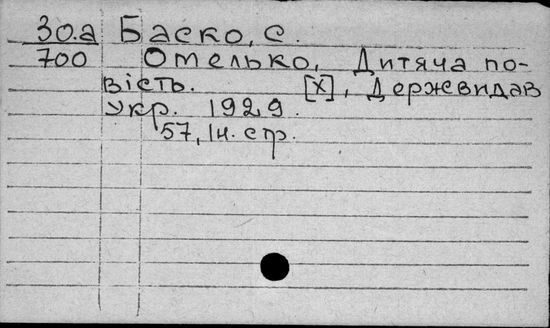 30.а Баско, С.
700 Отелько, Дитяча по-
вість. [Х], Держвидав
Укр. 1929.
57, 1н. стр.